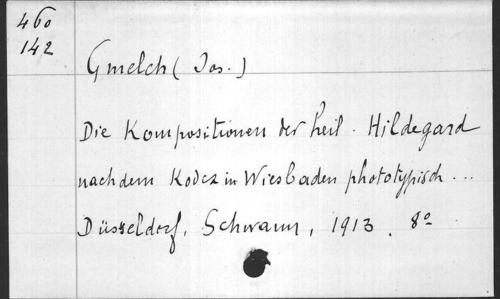 460
142
Gmelch (Jos.)
Die Kompositionen der heil. Hildegard
nach dem Kodex in Wiesbaden phototypisch ...
Düsseldorf, Schwann, 1913. 8º